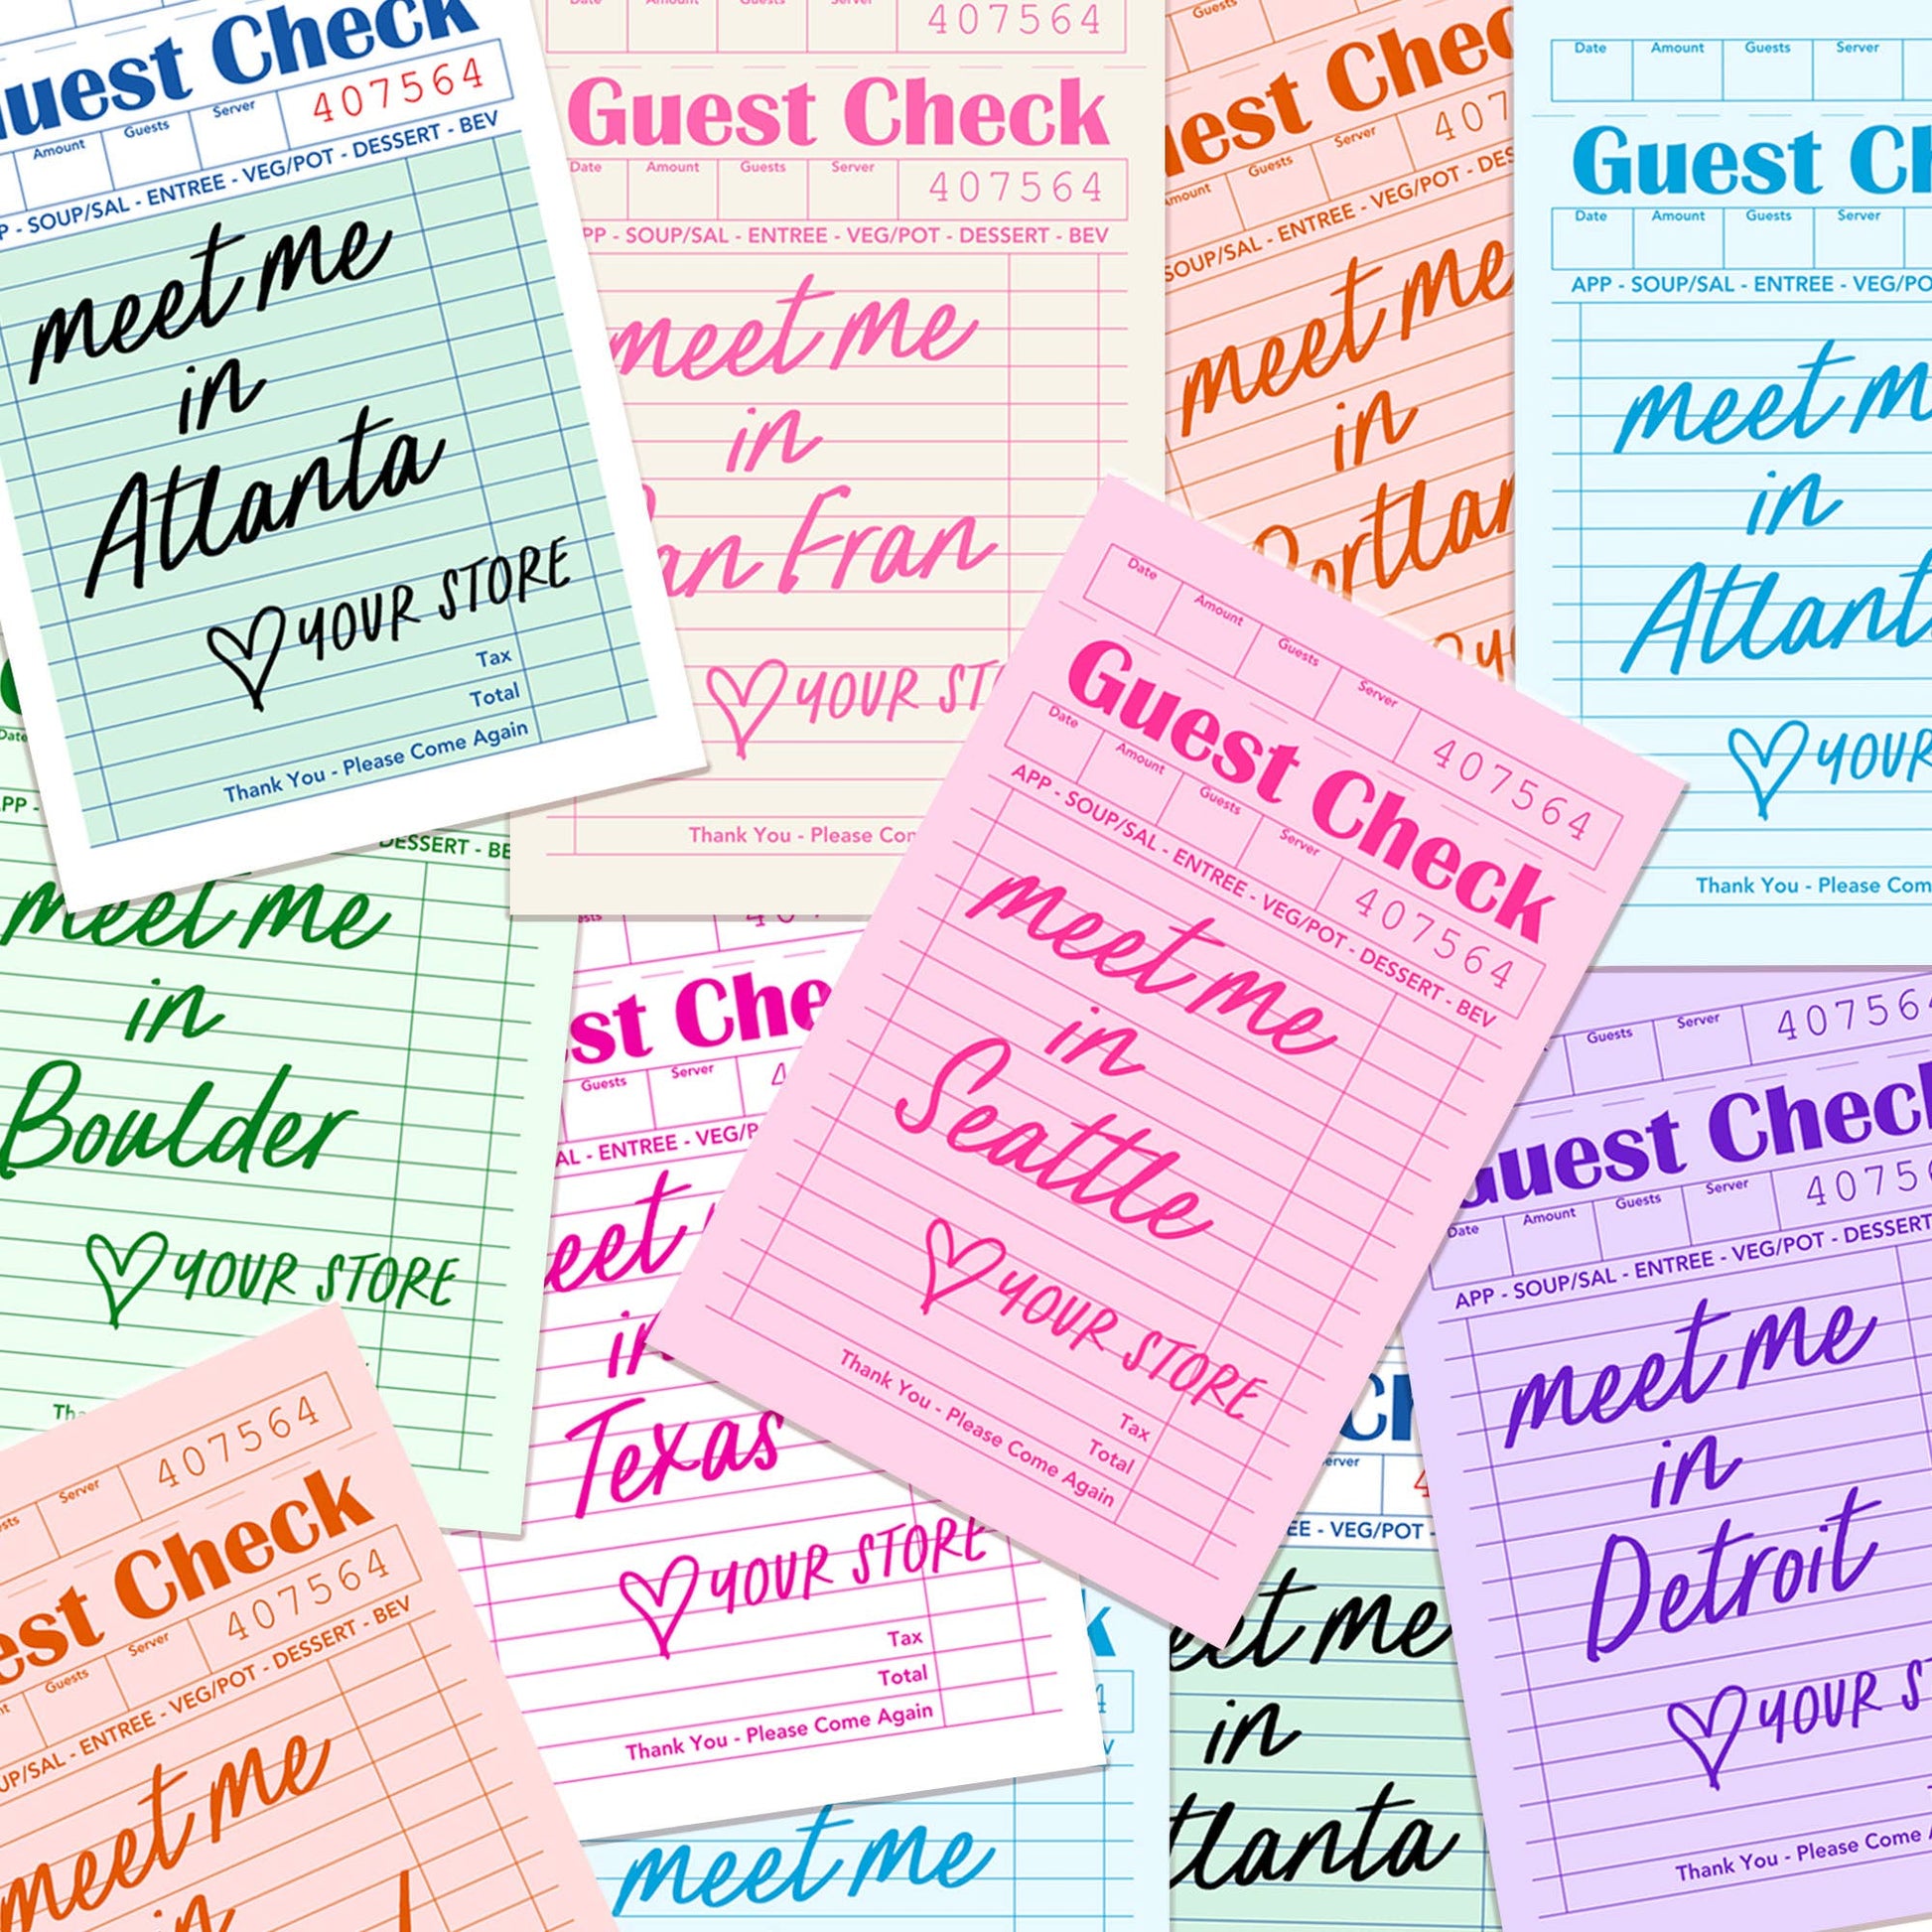 Guest Check
Amount Guests Server 407564
SOUP/SAL - ENTREE - VEG/POT - DESSERT - BEV
meet me
in
Atlanta
♡ YOUR STORE
Tax
Total
Thank You - Please Come Again
Date Amount Guests Server 407564
Guest Check
Date Amount Guests Server 407564
SOUP/SAL - ENTREE - VEG/POT - DESSERT - BEV
meet me
in
Fran
♡ YOUR
Thank You - Please
Guests
Guests Server
SOUP/SAL - ENTREE - VEG/POT
meet me
in
Date Amount Guests Server
Guest
Date Amount Guests Server
APP - SOUP/SAL - ENTREE
meet
in
♡ YOUR
Thank You - Please
Date Amount Guests Server 407564
Guest Check
Date Amount Guests Server 407564
APP - SOUP/SAL - ENTREE - VEG/POT - DESSERT - BEV
meet me
in
Seattle
♡ YOUR STORE
Tax
Total
Thank You - Please Come Again
Date
DESSERT
meet me
in
Boulder
♡ YOUR STORE
Guests Server
ENTREE
in
Texas
♡ YOUR STORE
Tax
Total
Thank You - Please Come Again
Guests Server
Check
Date Amount Guests Server
APP - SOUP/SAL - ENTREE - VEG/POT - DESSERT
meet me
in
Detroit
♡ YOUR
Thank You - Please Come
Server 407564
Check
Guests Server 407564
ENTREE - VEG/POT - DESSERT - BEV
meet me
in
meet me
VEG/POT
me
in